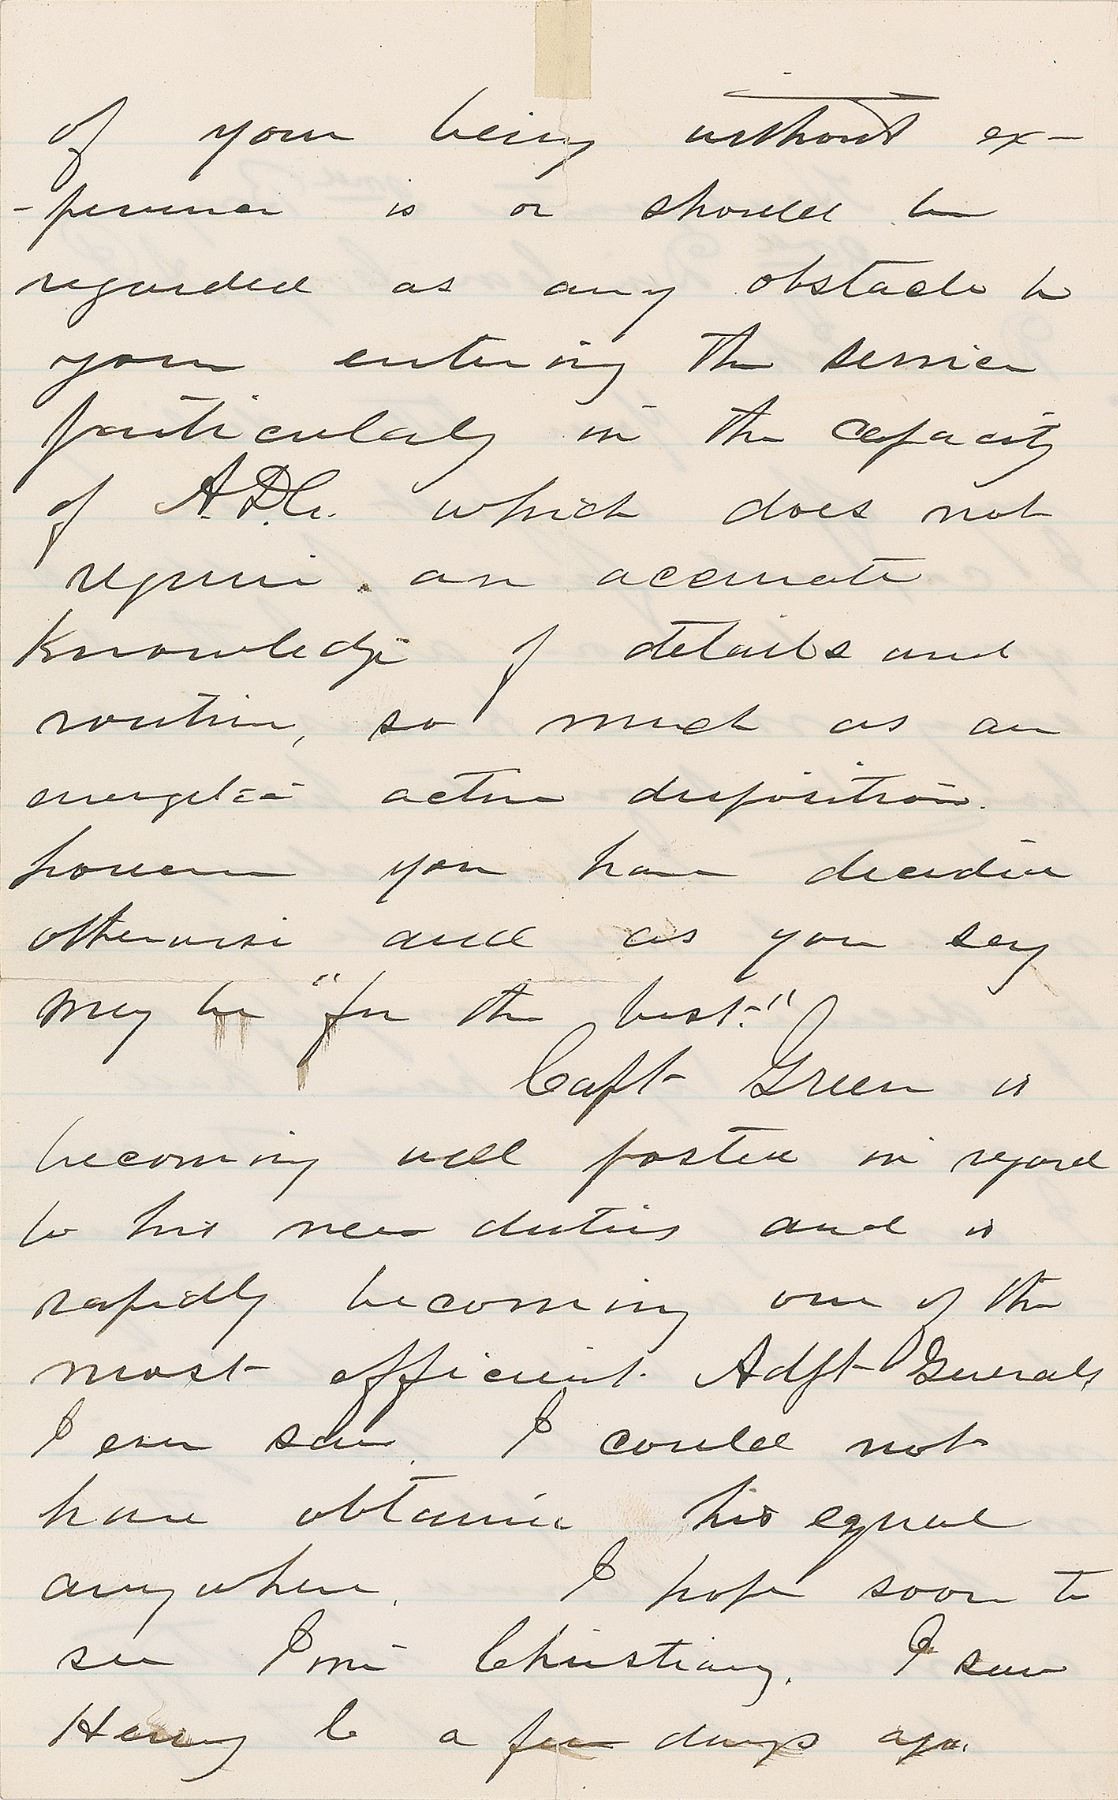 of your being without ex-
-perience is or should be
regarded as any obstacle to
your entering the service
particularly in the capacity
of A.D.C. which does not
require an accurate
knowledge of details and
routine, so much as an
energetic active disposition.
however you have decided
otherwise and as you say
may be "for the best."
Capt Green is
becoming well posted in regard
to his new duties and is
rapidly becoming one of the
most efficient Adjt Generals
I ever saw. I could not
have obtained his equal
anywhere. I hope soon to
see Jim Christiancy. I saw
Henry C a few days ago.